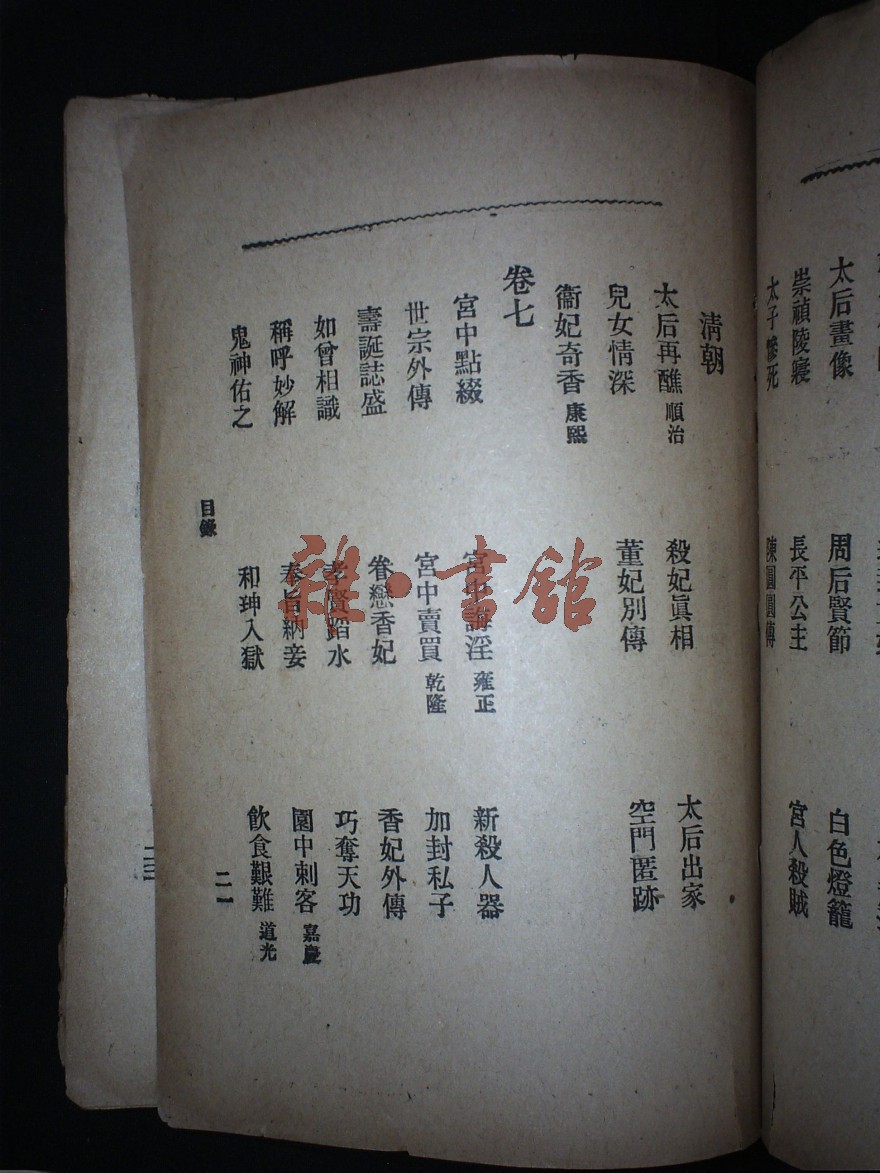 太后畫像 周后賢節 白色燈籠
崇禎陵寢 長平公主 宮人殺賊
太子慘死 陳圓圓傳
清朝
太后再醮 順治 殺妃眞相 太后出家
兒女情深 董妃別傳 空門匿跡
衞妃奇香 康熙
卷七
宮中點綴 宮中誨淫 雍正 新殺人器
世宗外傳 宮中賣買 乾隆 加封私子
壽誕誌盛 眷戀香妃 香妃外傳
如曾相識 孝賢蹈水 巧奪天功
稱呼妙解 奉旨納妾 園中刺客 嘉慶
鬼神佑之 和珅入獄 飲食艱難 道光
目錄 二一
雜·書館